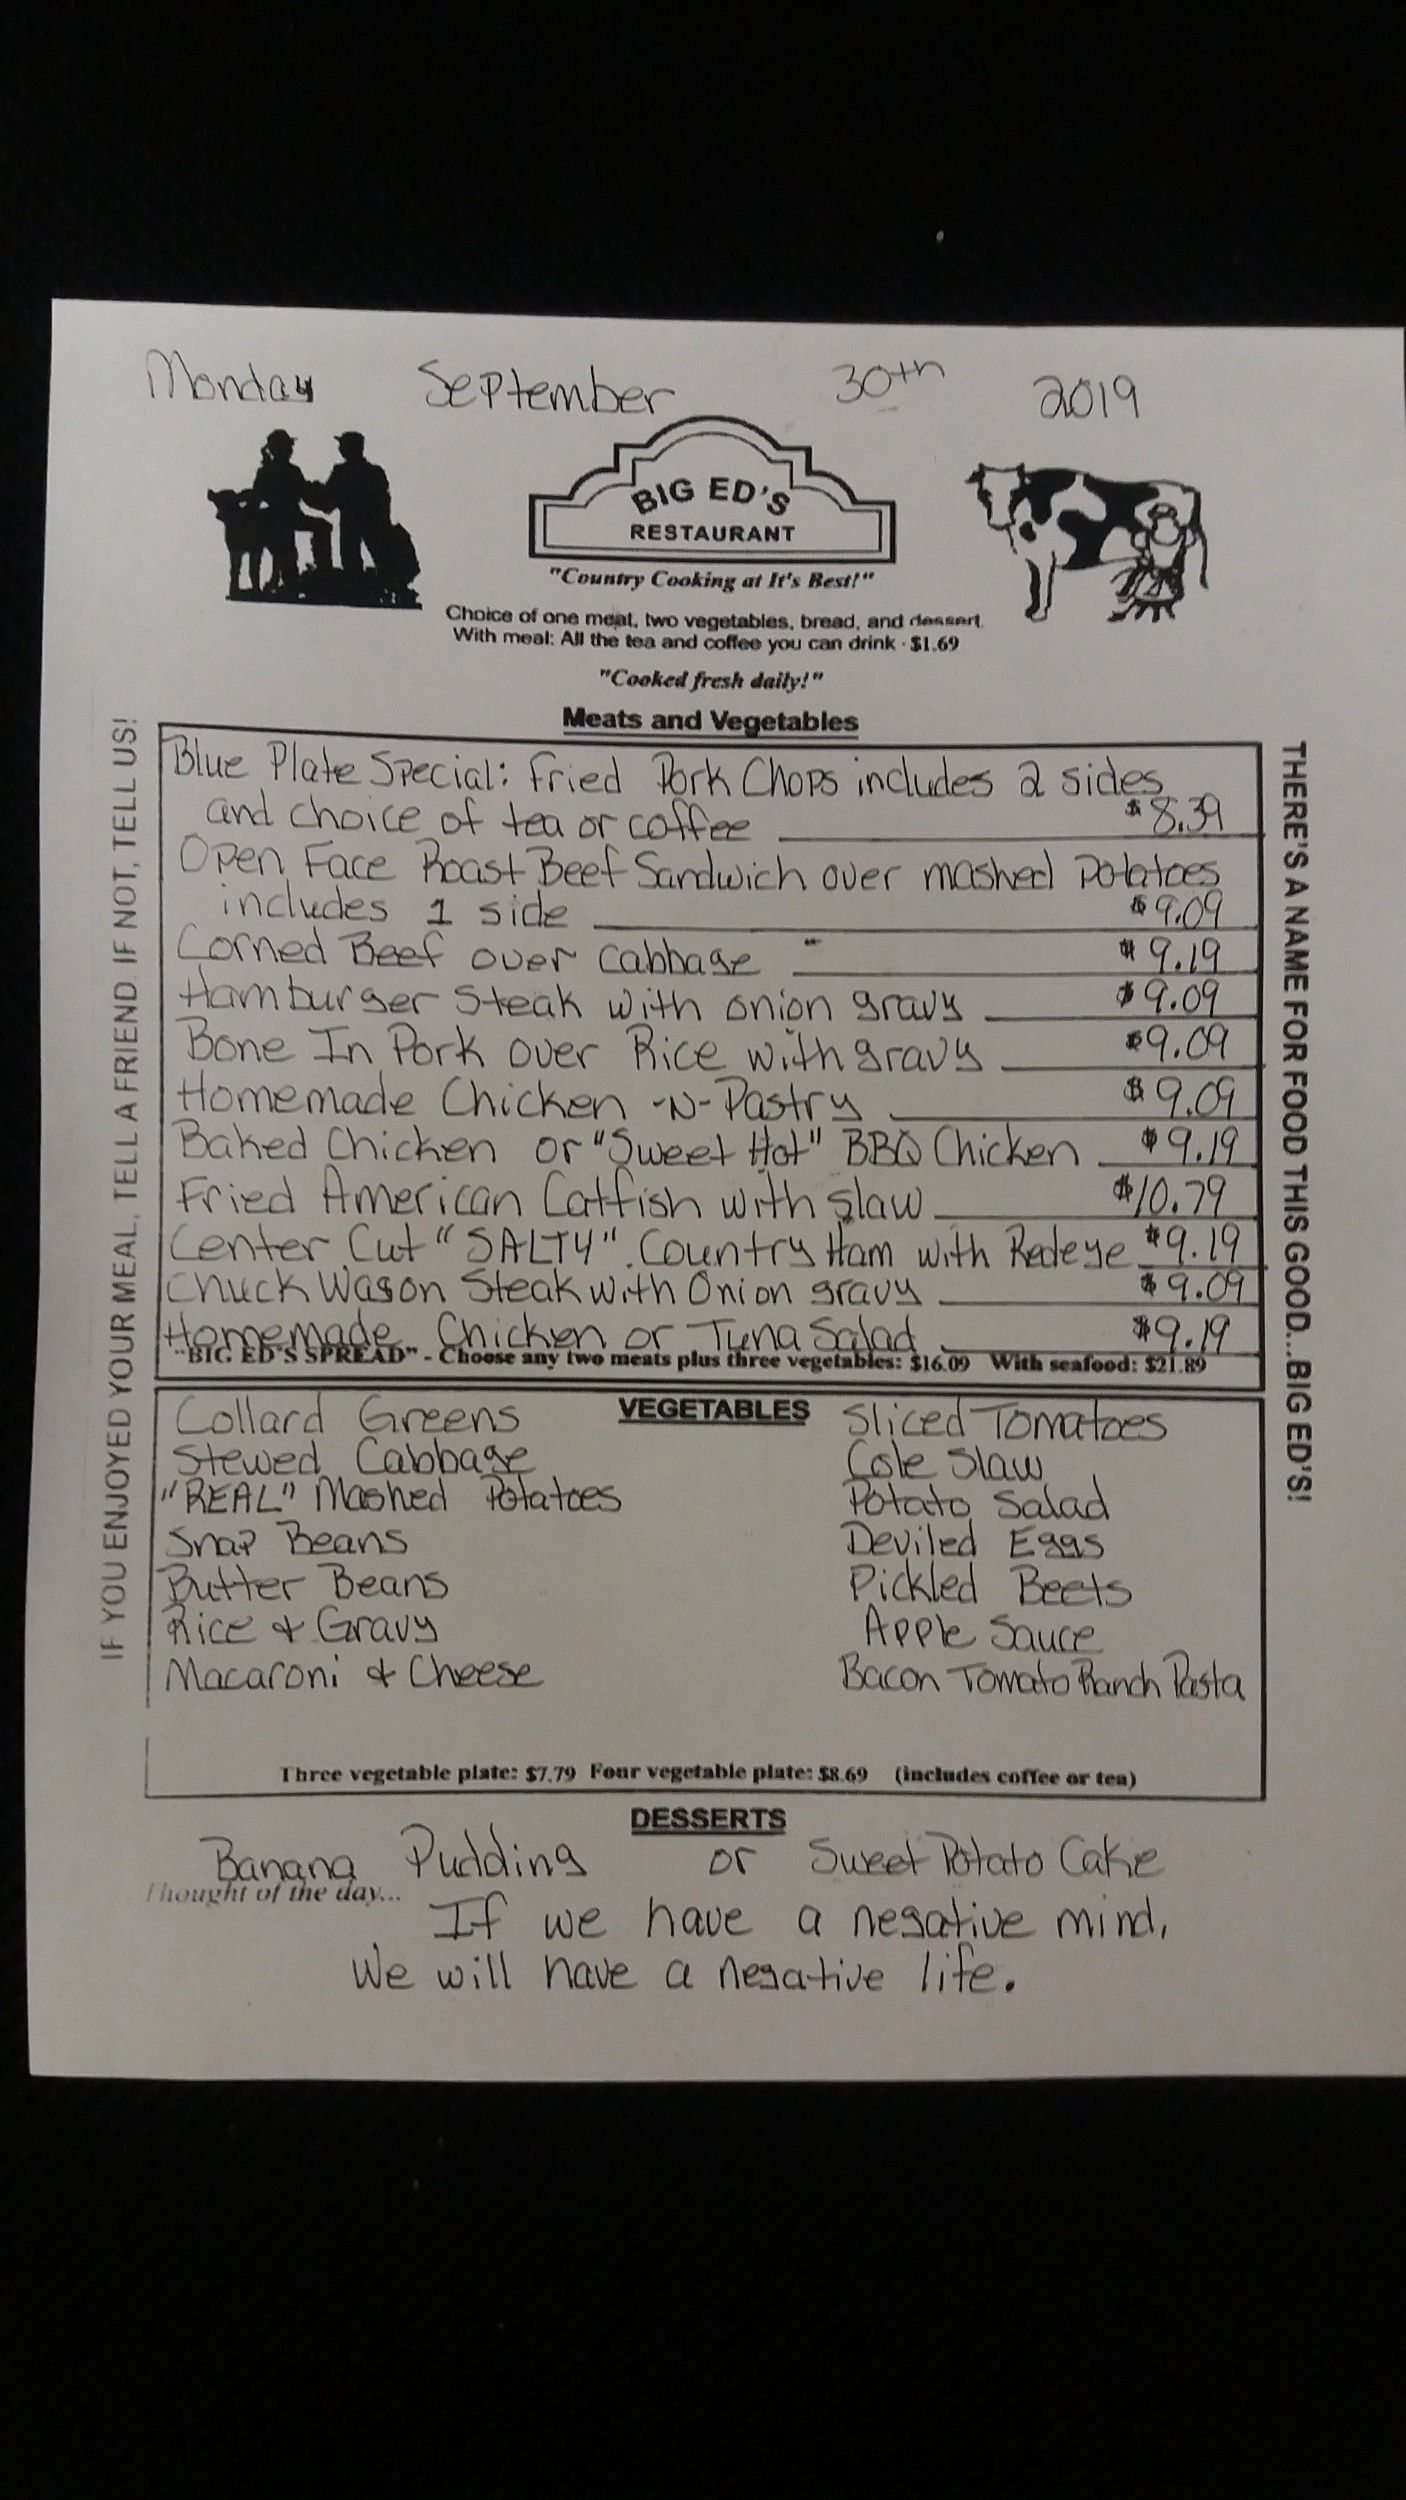 Monday September 30th 2019
BIG ED'S
RESTAURANT
"Country Cooking at It's Best!"
Choice of one meat, two vegetables, bread, and dessert.
With meal: All the tea and coffee you can drink · $1.69
"Cooked fresh daily!"
Meats and Vegetables
Blue Plate Special: Fried Pork Chops includes 2 sides
and choice of tea or coffee $8.39
Open Face Roast Beef Sandwich over mashed Potatoes
includes 1 side $9.09
Corned Beef over Cabbage $9.19
Hamburger Steak with onion gravy $9.09
Bone In Pork over Rice with gravy $9.09
Homemade Chicken -N- Pastry $9.09
Baked Chicken or "Sweet Hot" BBQ Chicken $9.19
Fried American Catfish with slaw $10.79
Center Cut "SALTY" Country Ham with Redeye $9.19
Chuck Wagon Steak with Onion gravy $9.09
Homemade Chicken or Tuna Salad $9.19
"BIG ED'S SPREAD" - Choose any two meats plus three vegetables: $16.09 With seafood: $21.89
VEGETABLES
Collard Greens
Stewed Cabbage
"REAL" Mashed Potatoes
Snap Beans
Butter Beans
Rice & Gravy
Macaroni & Cheese
Sliced Tomatoes
Cole Slaw
Potato Salad
Deviled Eggs
Pickled Beets
Apple Sauce
Bacon Tomato Ranch Pasta
Three vegetable plate: $7.79 Four vegetable plate: $8.69 (includes coffee or tea)
DESSERTS
Banana Pudding or Sweet Potato Cake
Thought of the day...
If we have a negative mind,
We will have a negative life.
IF YOU ENJOYED YOUR MEAL, TELL A FRIEND IF NOT, TELL US!
THERE'S A NAME FOR FOOD THIS GOOD...BIG ED'S!